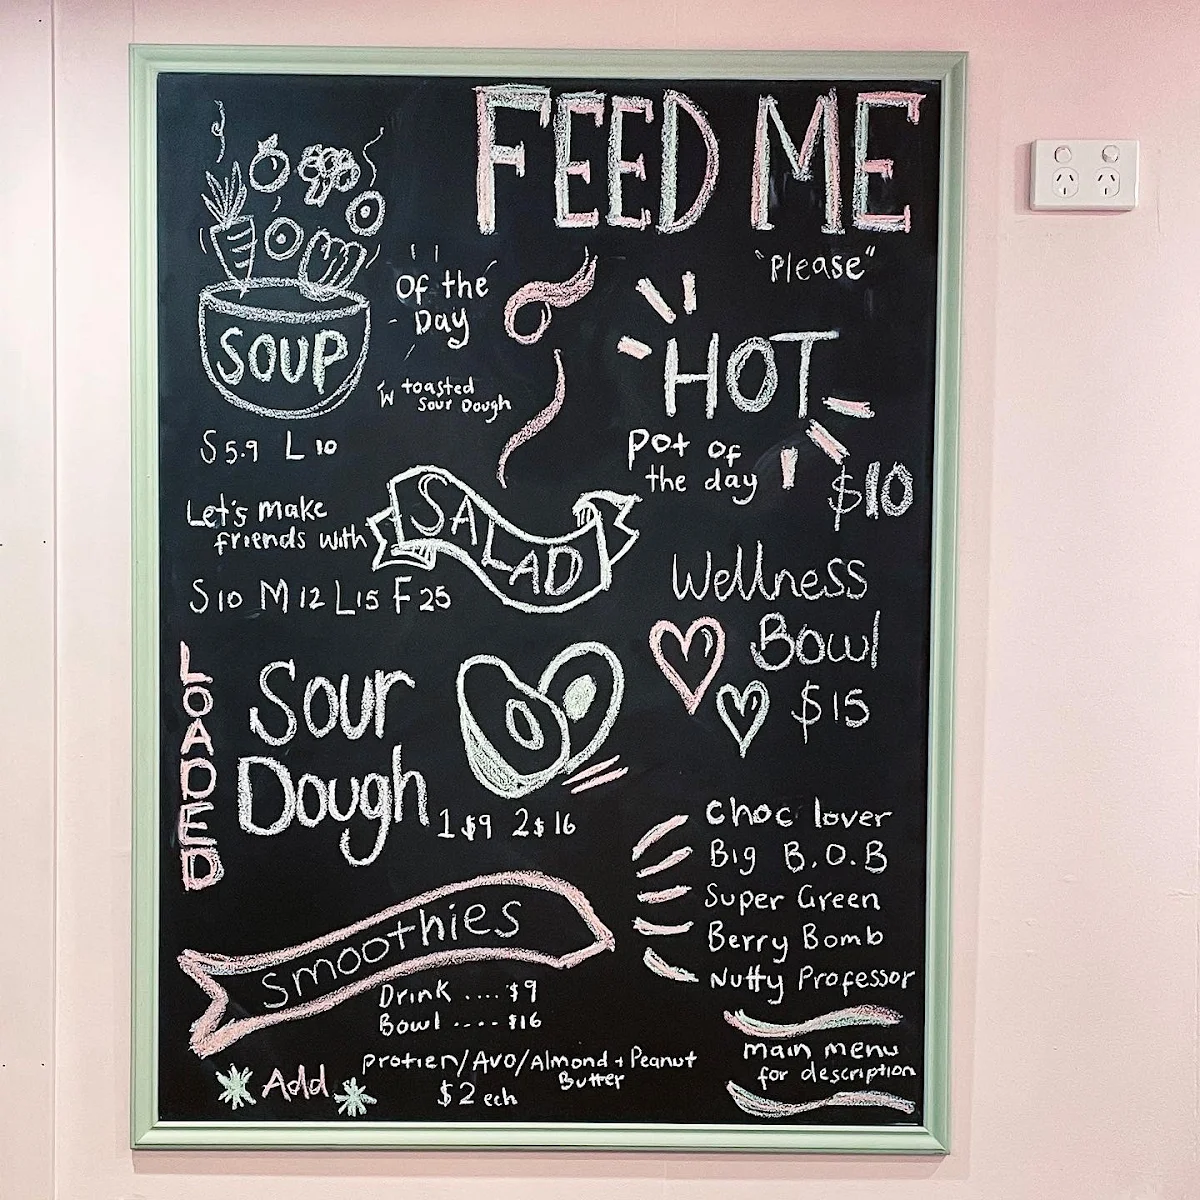 FEED ME
"Please"
SOUP
Of the
Day
W toasted
Sour Dough
S 5.9 L 10
HOT
pot of
the day
$10
Let's make
friends with
SALAD
S10 M12 L15 F25
Wellness
Bowl
$15
LOADED
Sour
Dough
1 $9 2 $16
Smoothies
Drink .... $9
Bowl .... $16
choc lover
Big B.O.B
Super Green
Berry Bomb
Nutty Professor
main menu
for description
Add
protien/Avo/Almond + Peanut
Butter
$2 ech